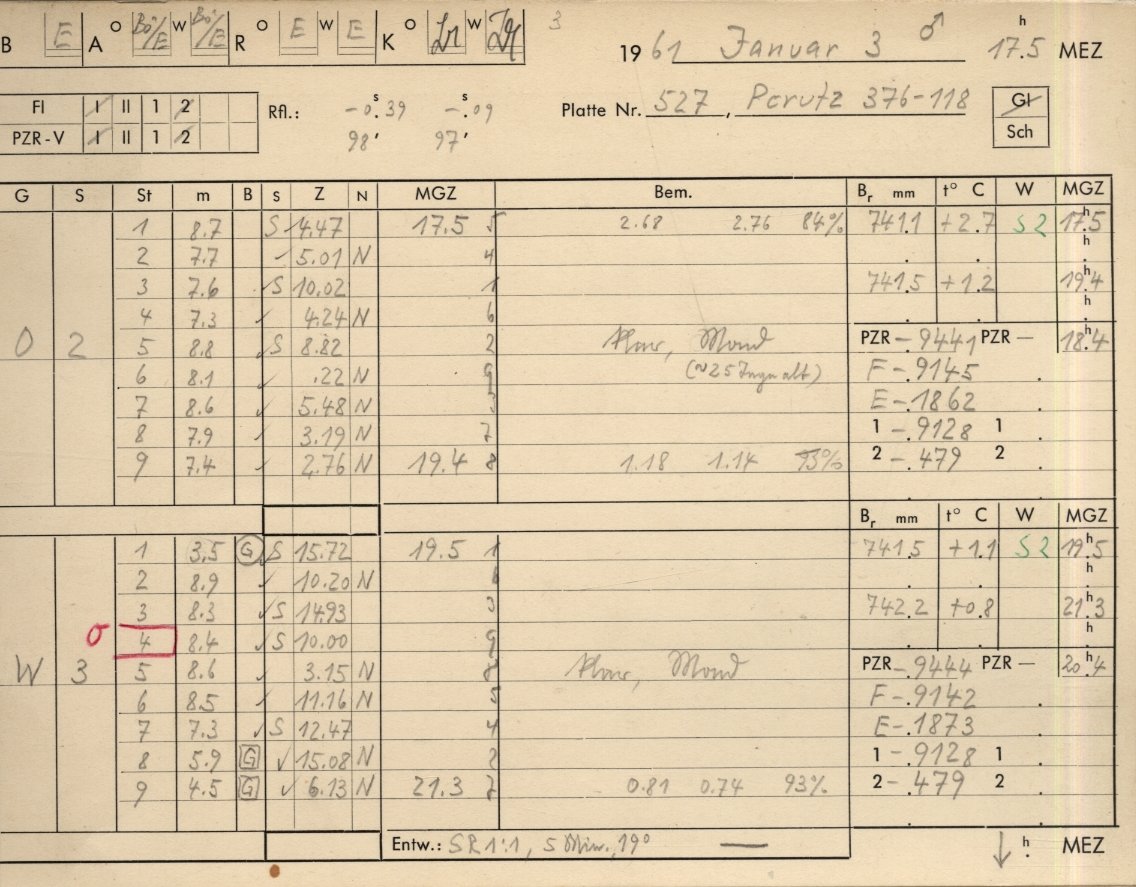 B E A O Bö/E W Bö/E R O E W E K O W 3
1961 Januar 3 ♂ 17.5 h MEZ
FI I II 1 2
PZR-V I II 1 2
Rfl.: -0.s39 -.s09
98' 97'
Platte Nr. 527, Perutz 376-118
Gl
Sch
G S St m B S Z N MGZ Bem. Br mm t° C W MGZ
O 2
1 8.7 S 14.47 17.5 5 2.68 2.76 84% 741.1 +2.7 S2 17.5 h
2 7.7 ✓ 5.01 N 4
3 7.6 ✓ S 10.02 1 741.5 +1.2 19.4 h
4 7.3 ✓ 4.24 N 6
5 8.8 ✓ S 8.82 2 klar, Mond PZR -.9441 PZR - 18.4 h
6 8.1 ✓ .22 N 9 (~25 Tage alt) F -.9145
7 8.6 ✓ 5.48 N 3 E -.1862
8 7.9 ✓ 3.19 N 7 1 -.9128 1
9 7.4 ✓ 2.76 N 19.4 8 1.18 1.14 93% 2 -.479 2
Br mm t° C W MGZ
W 3
1 3.5 G ✓ S 15.72 19.5 1 741.5 +1.1 S2 19.5 h
2 8.9 ✓ 10.20 N 6
3 8.3 ✓ S 14.93 3 742.2 +0.8 21.3 h
σ 4 8.4 ✓ S 10.00 9
5 8.6 ✓ 3.15 N 8 klar, Mond PZR -.9444 PZR - 20.4 h
6 8.5 ✓ 11.16 N 5 F -.9142
7 7.3 ✓ S 12.47 4 E -.1873
8 5.9 G ✓ 15.08 N 2 1 -.9128 1
9 4.5 G ✓ 6.13 N 21.3 7 0.81 0.74 93% 2 -.479 2
Entw.: SR 1:1, 5 Min., 19° — ↓ h MEZ